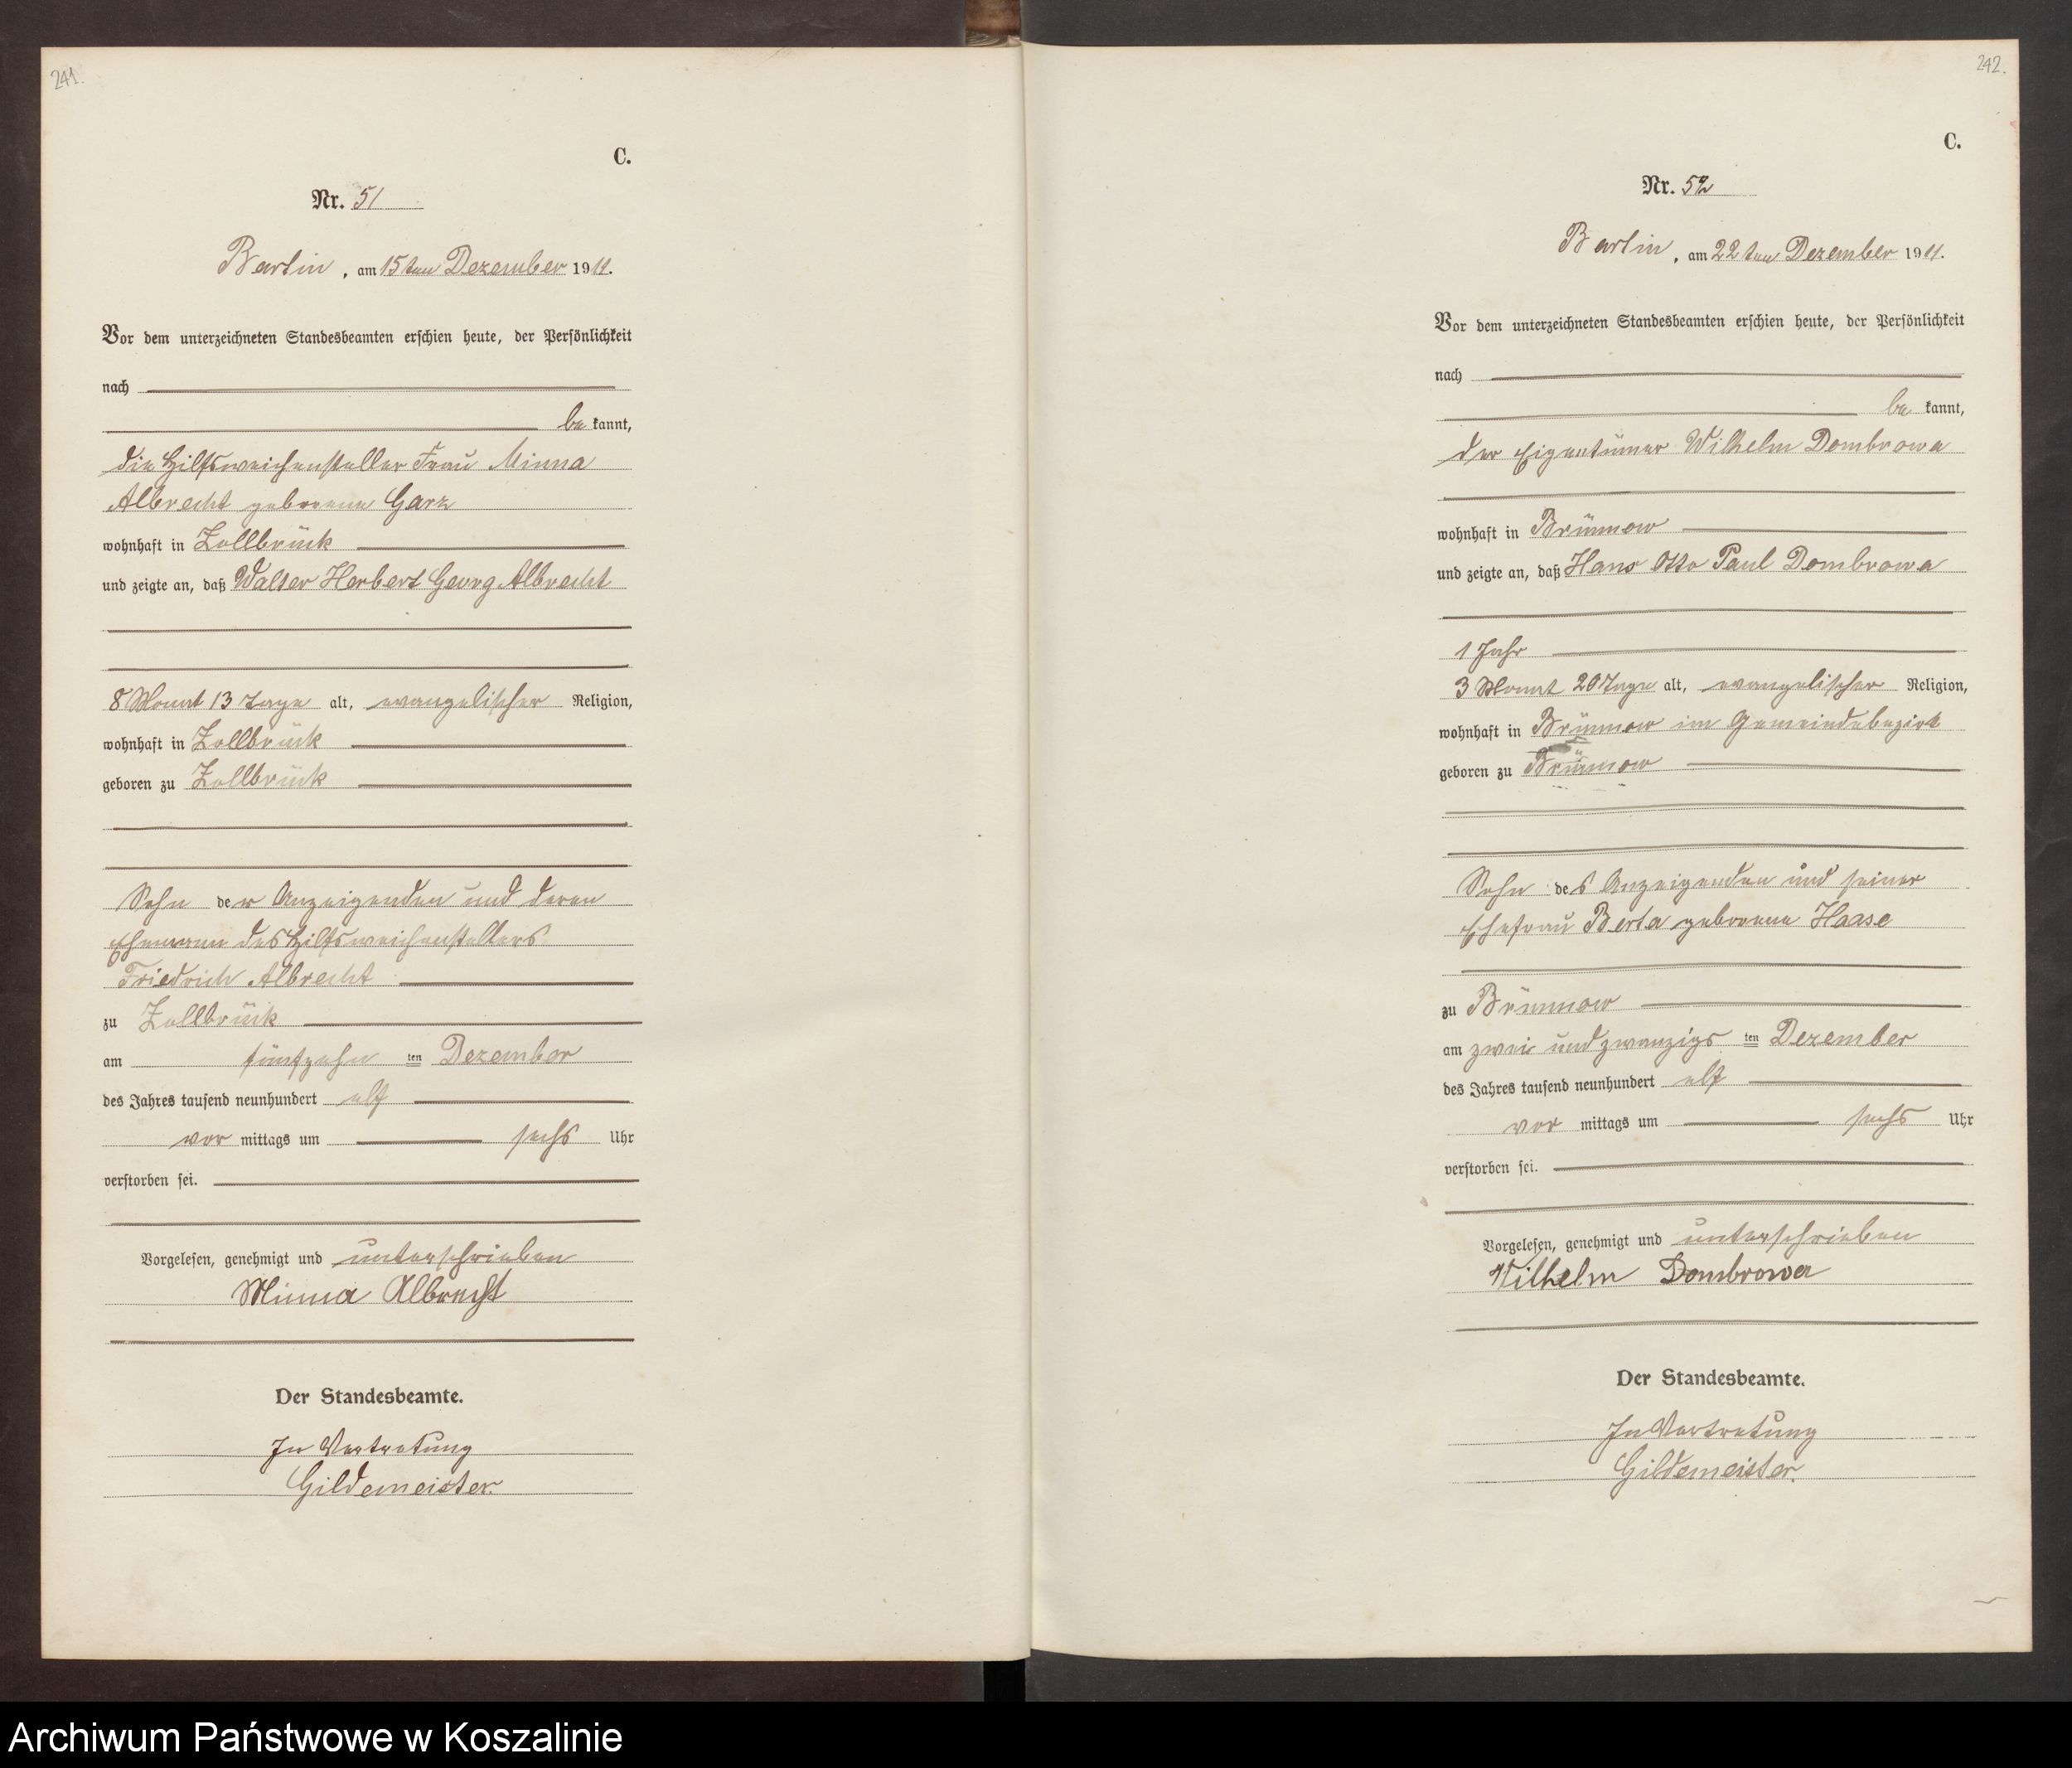 241.
C.
Nr. 51
Bartin, am 15ten Dezember 1911.
Vor dem unterzeichneten Standesbeamten erschien heute, der Persönlichkeit
nach
bekannt,
die Hilfsweichensteller Frau Minna
Albrecht geborene Garz
wohnhaft in Zollbrück
und zeigte an, daß Walter Herbert Georg Albrecht
8 Monat 13 Tage alt, evangelischer Religion,
wohnhaft in Zollbrück
geboren zu Zollbrück
Sohn der Anzeigenden und deren
Ehemann des Hilfsweichenstellers
Friedrich Albrecht
zu Zollbrück
am fünfzehnten Dezember
des Jahres tausend neunhundert elf
vormittags um sechs Uhr
verstorben sei.
Vorgelesen, genehmigt und unterschrieben
Minna Albrecht
Der Standesbeamte.
In Vertretung
Gildemeister.
242.
C.
Nr. 52
Bartin, am 22ten Dezember 1911.
Vor dem unterzeichneten Standesbeamten erschien heute, der Persönlichkeit
nach
bekannt,
der Eigentümer Wilhelm Dombrowa
wohnhaft in Brünnow
und zeigte an, daß Hans Otto Paul Dombrowa
1 Jahr
3 Monat 20 Tage alt, evangelischer Religion,
wohnhaft in Brünnow im Gemeindebezirk
geboren zu Brünnow
Sohn des Anzeigenden und seiner
Ehefrau Berta geborene Haase
zu Brünnow
am zwei und zwanzigsten Dezember
des Jahres tausend neunhundert elf
vormittags um sechs Uhr
verstorben sei.
Vorgelesen, genehmigt und unterschrieben
Wilhelm Dombrowa
Der Standesbeamte.
In Vertretung
Gildemeister.
Archiwum Państwowe w Koszalinie